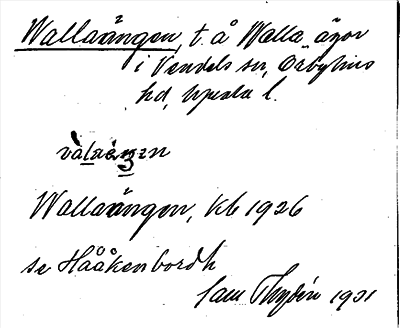 Wallaängen, t. å Walla ägor
i Vendels sn, Örbyhus
hd, Upsala l.
Wallaängen, kb 1926
se Hååkenbordh
1931